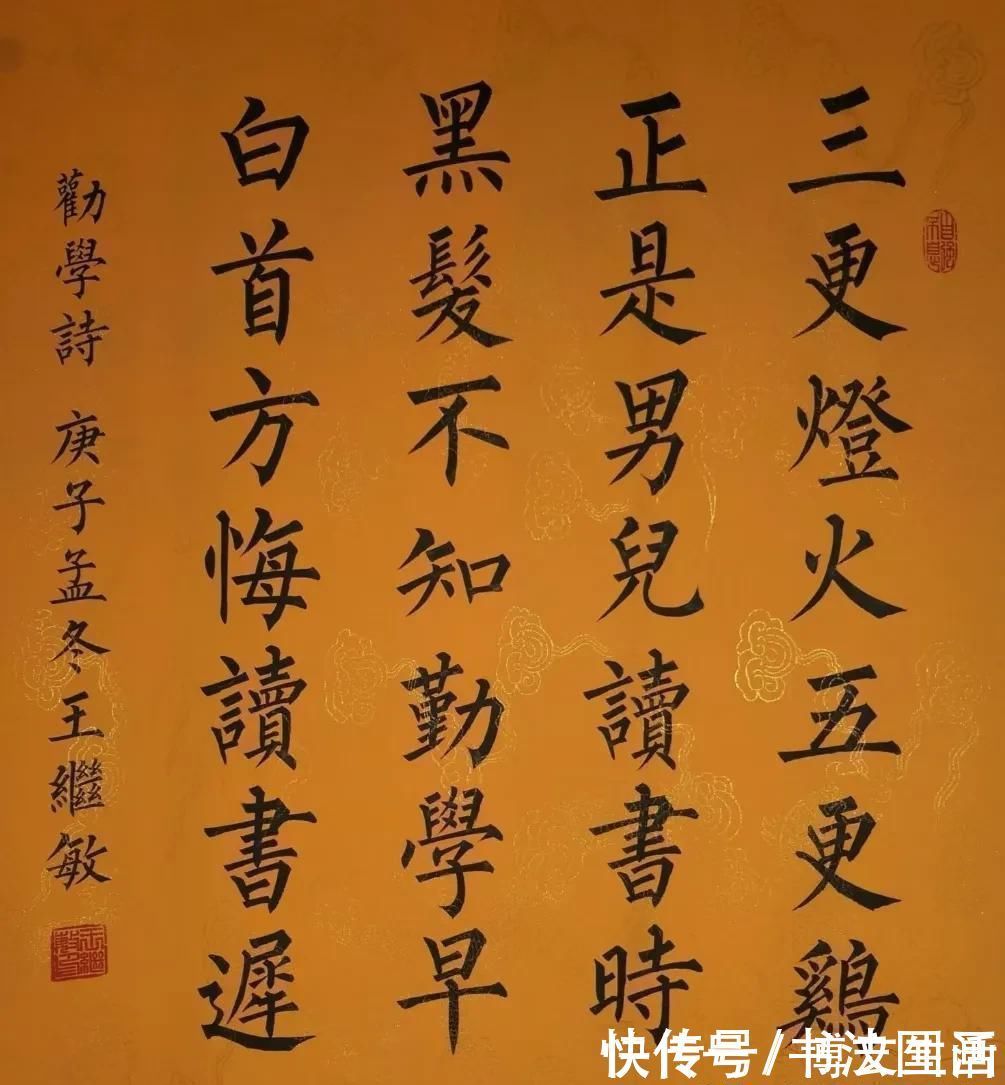 三更燈火五更鷄
正是男兒讀書時
黑髮不知勤學早
白首方悔讀書遲
勸學詩 庚子孟冬王繼敏
快传号/